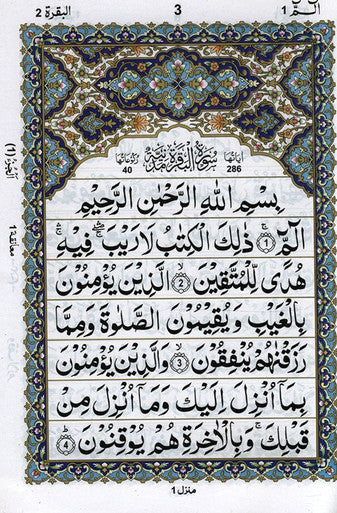 البقرة 2
3
الٓمّٓ 1
سُوْرَةُ الْبَقَرَةِ مَدَنِيَّةٌ
اٰيَاتُهَا 286
رُكُوْعَاتُهَا 40
بِسْمِ اللّٰهِ الرَّحْمٰنِ الرَّحِيْمِ
الٓمّٓ ۚ﴿1﴾ ذٰلِكَ الْكِتٰبُ لَا رَيْبَ ۛۖ فِيْهِ ۛۚ
هُدًى لِّلْمُتَّقِيْنَ ۙ﴿2﴾ الَّذِيْنَ يُؤْمِنُوْنَ
بِالْغَيْبِ وَيُقِيْمُوْنَ الصَّلٰوةَ وَمِمَّا
رَزَقْنٰهُمْ يُنْفِقُوْنَ ۙ﴿3﴾ وَالَّذِيْنَ يُؤْمِنُوْنَ
بِمَآ اُنْزِلَ اِلَيْكَ وَمَآ اُنْزِلَ مِنْ
قَبْلِكَ ۚ وَبِالْاٰخِرَةِ هُمْ يُوْقِنُوْنَ ؕ﴿4﴾
الجزء (1)
معانقة 1
منزل 1